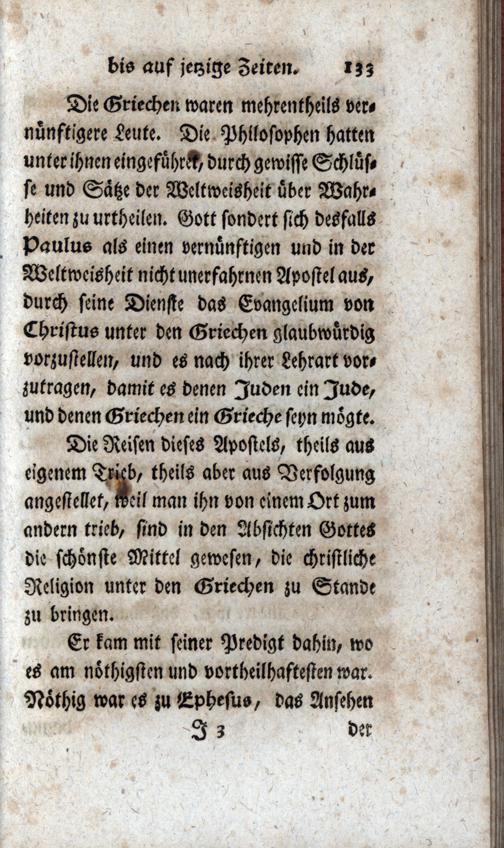 bis auf jetzige Zeiten. 133
Die Griechen waren mehrentheils ver-
nünftigere Leute. Die Philosophen hatten
unter ihnen eingeführet, durch gewisse Schlüs-
se und Sätze der Weltweisheit über Wahr-
heiten zu urtheilen. Gott sondert sich desfalls
Paulus als einen vernünftigen und in der
Weltweisheit nicht unerfahrnen Apostel aus,
durch seine Dienste das Evangelium von
Christus unter den Griechen glaubwürdig
vorzustellen, und es nach ihrer Lehrart vor-
zutragen, damit es denen Juden ein Jude,
und denen Griechen ein Grieche seyn mögte.
Die Reisen dieses Apostels, theils aus
eigenem Trieb, theils aber aus Verfolgung
angestellet, weil man ihn von einem Ort zum
andern trieb, sind in den Absichten Gottes
die schönste Mittel gewesen, die christliche
Religion unter den Griechen zu Stande
zu bringen.
Er kam mit seiner Predigt dahin, wo
es am nöthigsten und vortheilhaftesten war.
Nöthig war es zu Ephesus, das Ansehen
J 3 der